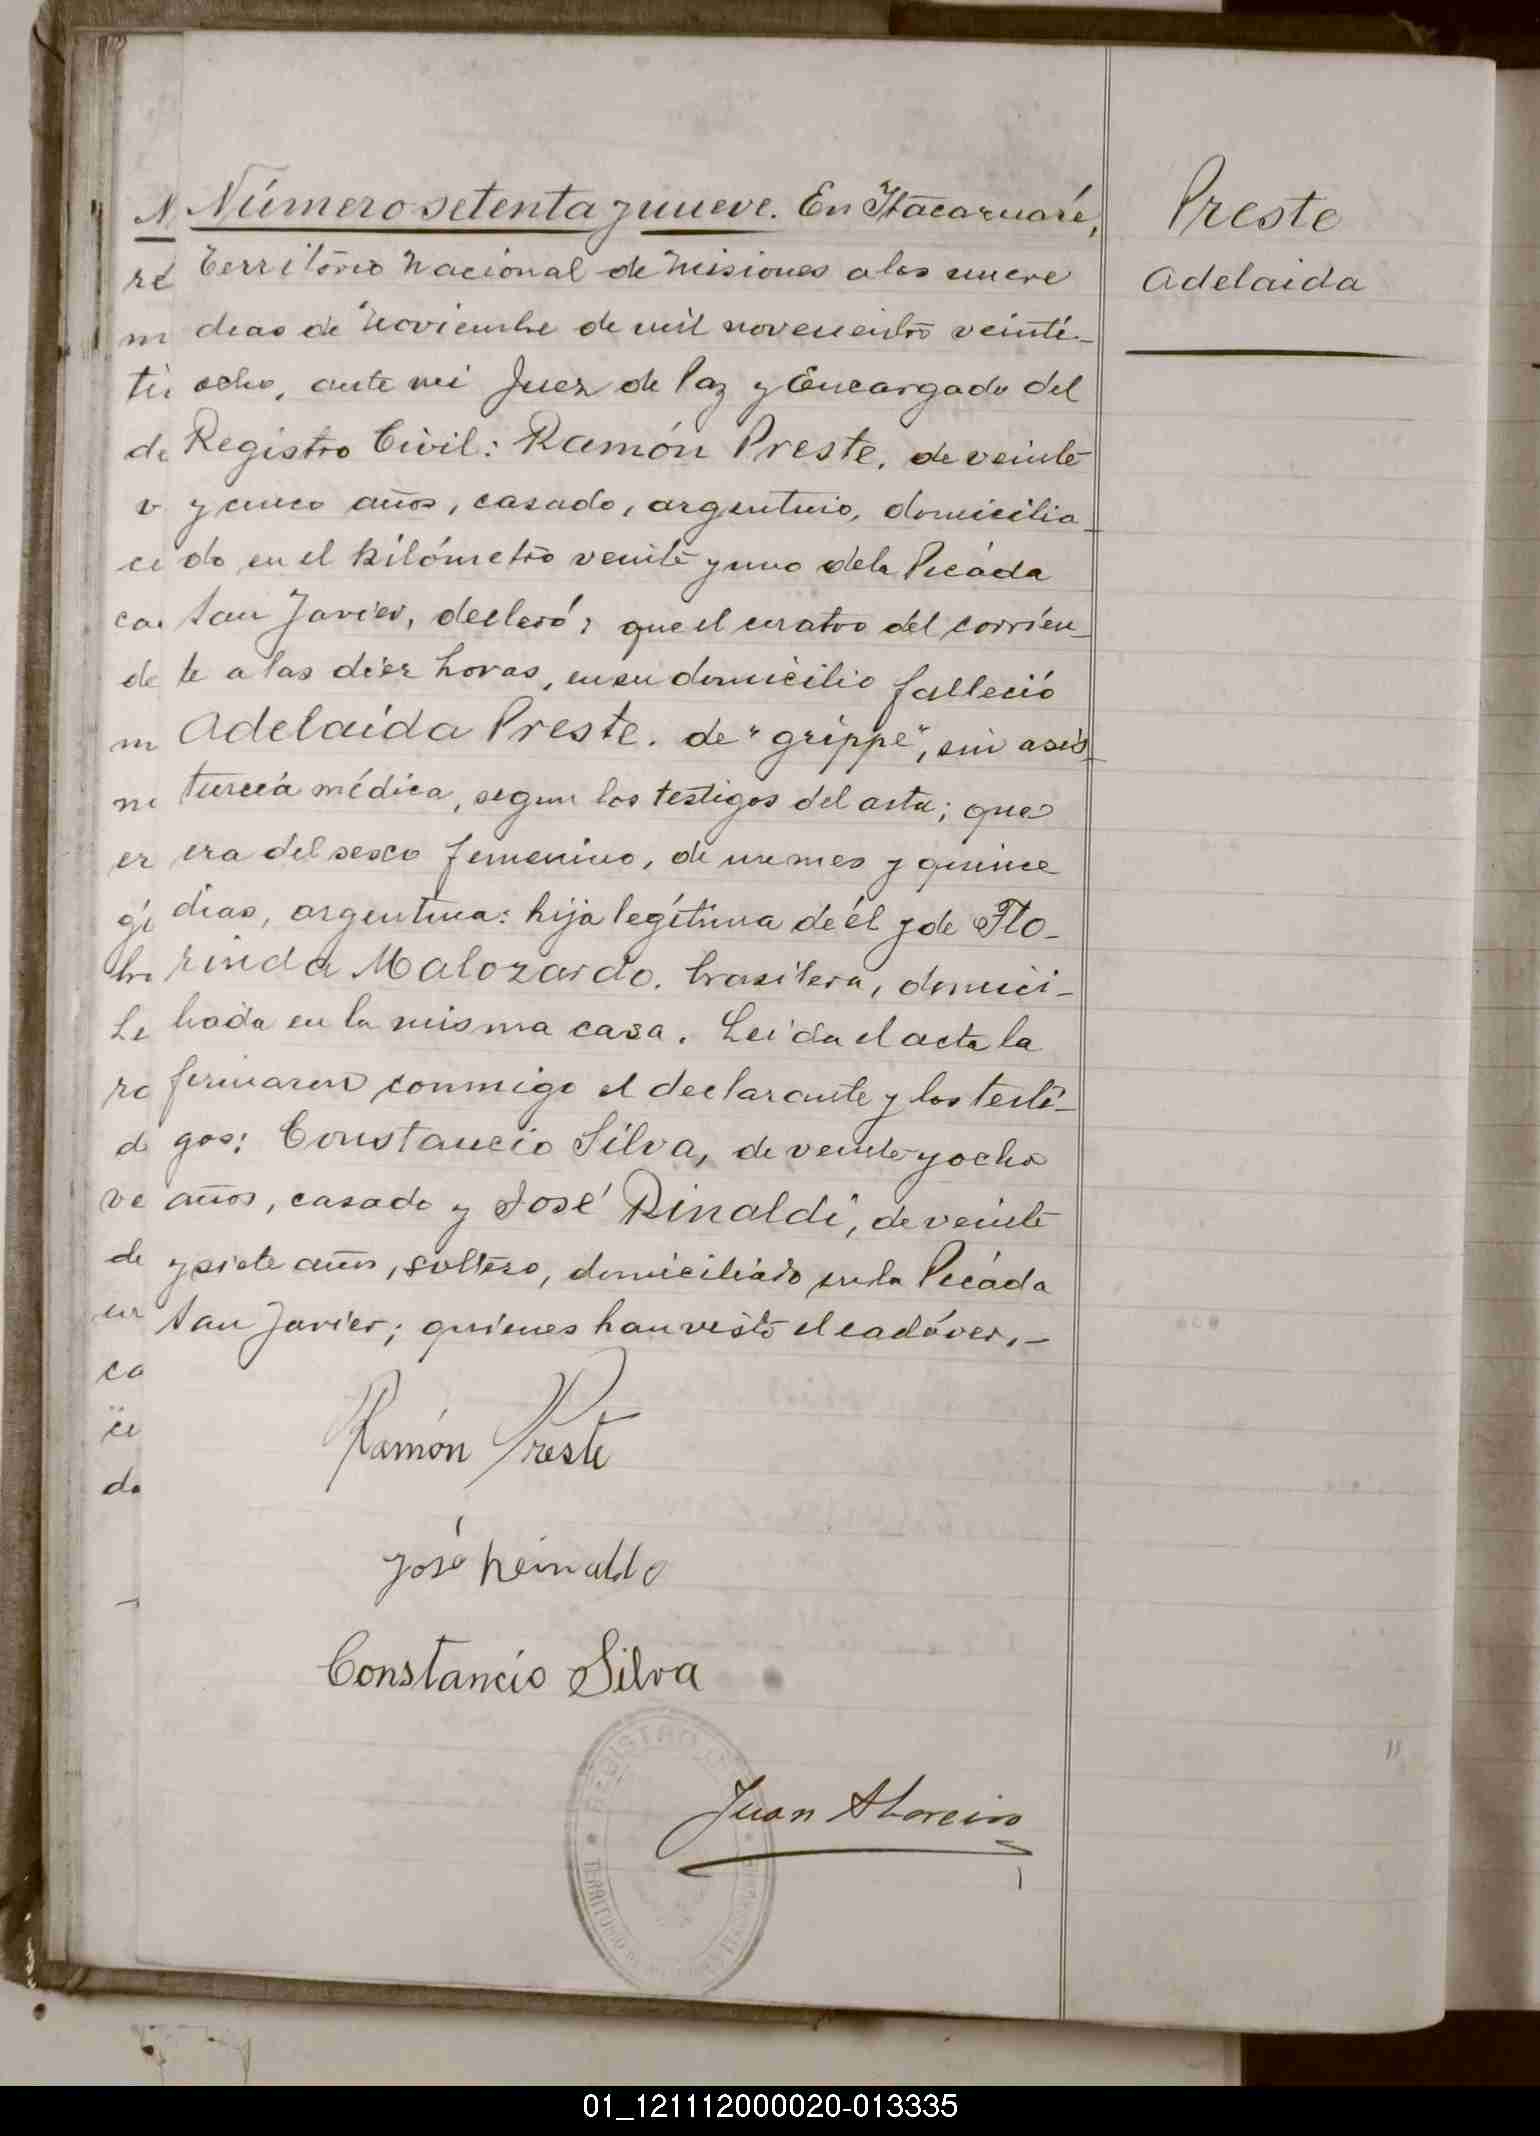 Número setenta y nueve. En Itacaruaré,
Preste
Adelaida
Territorio Nacional de Misiones a los nueve
dias de Noviembre de mil novecientos veinti-
ocho, ante mi Juez de Paz y Encargado del
Registro Civil: Ramón Preste, de veinte
y cinco años, casado, argentino, domicilia-
do en el kilómetro veinte y uno de la Picáda
San Javier, declaró; que el cuatro del corrien-
te a las diez horas, en su domicilio falleció
Adelaida Preste. de "grippe", sin asis-
tencia médica, segun los testigos del acta; que
era del sexo femenino, de un mes y quince
dias, argentina: hija legítima de él y de Flo-
rinda Malozardo. brasilera, domici-
liada en la misma casa. Leida el acta la
firmaron conmigo el declarante y los testi-
gos: Constancio Silva, de veinte y ocho
años, casado y José Rinaldi, de veinte
y siete años, soltero, domiciliado en la Picáda
San Javier; quienes han visto el cadáver.-
Ramón Preste
José Reinaldo
Constancio Silva
REGISTRO
TERRITORIO DE
Juan
01_121112000020-013335